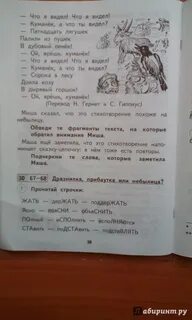 — Что я видел! Что я видел!
— Куманёк, а что ты видел?
— Пятнадцать лягушек
Палили из пушек
В дубовый пень!
— Ой, врёшь, куманёк!
— Что я видел! Что я видел!
— Куманёк, а что ты видел?
— Сорока в лесу
Доила козу
В дырявый горшок!
— Ой, врёшь, куманёк!
(Перевод Н. Гернет и С. Гиппиус)
Миша сказал, что это стихотворение похоже на небылицу.
Обведи те фрагменты текста, на которые обратил внимание Миша.
Маша ещё заметила, что это стихотворение напоминает сказку-цепочку: в нём тоже есть повторы.
Подчеркни те слова, которые заметила Маша.
30 67–68 Дразнилка, прибаутка или небылица?
Прочитай строчки:
ЖАТЬ — держАТЬ — поддержАТЬ
ЯСно — вЫЯСНИ — объЯСНИТЬ
ПОлный — иСПОЛНИть — вспоЛНЯется
СТАвить — подСТАвить — подстаВЛЯТЬ
38
абиринт.ру